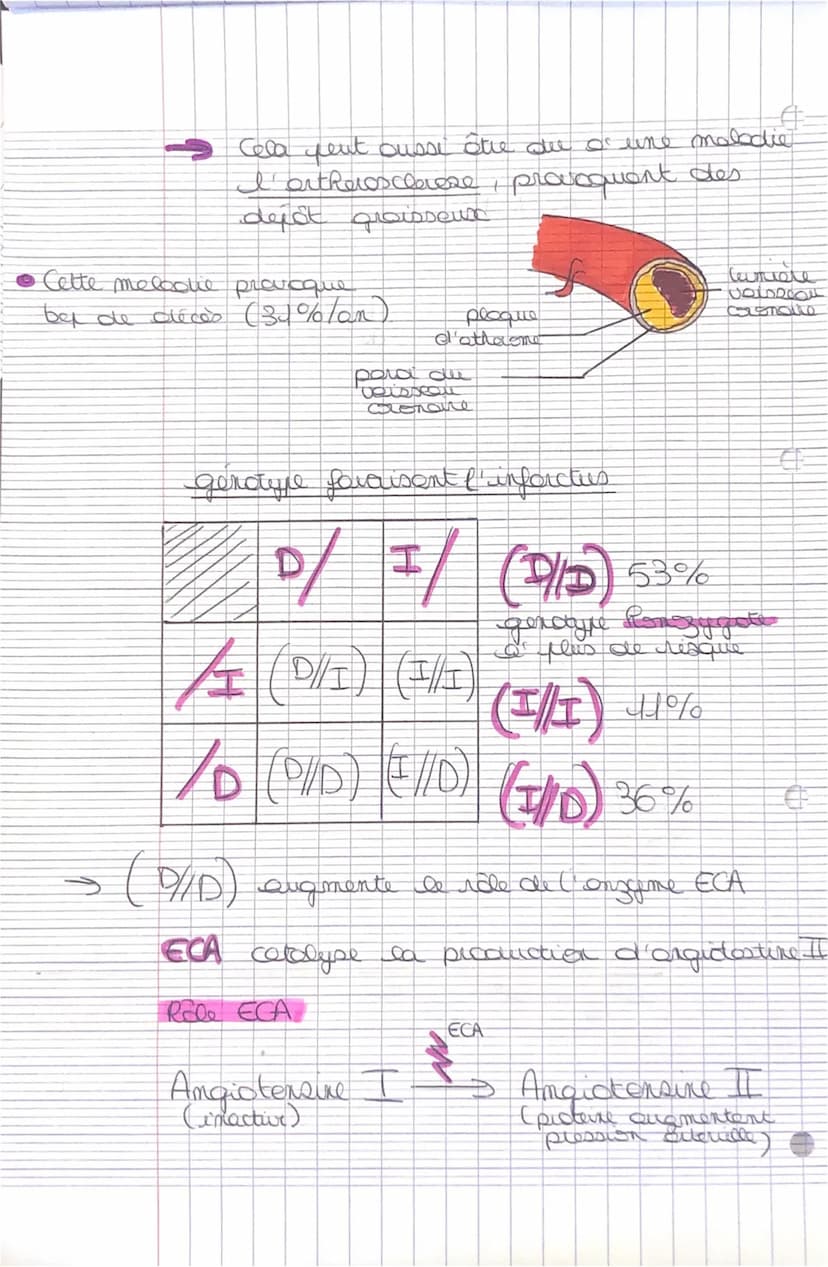 → Cela peut aussi être du à une maladie
l'artherosclerose, provoquant des
dépôt graisseux
• Cette maladie provoque
bep de décès (31%/an)
lumière
vaisseau
coronaire
plaque
d'atherome
paroi du
vaisseau
coronaire
génotype favaisant l'infarctus
D/ I/
(D//D) 53%
génotype
à plus de risque
/I (D//I) (I//I)
(I//I) 11%
/D (D//D) (I//D)
(I//D) 36%
→ (D//D) augmente le rôle de l'enzyme ECA
ECA catalyse la production d'angidostine II
Rôle ECA
ECA
Angiotensine I → Angiotensine II
(inactive) (proteine augmentant
pression artérielle)